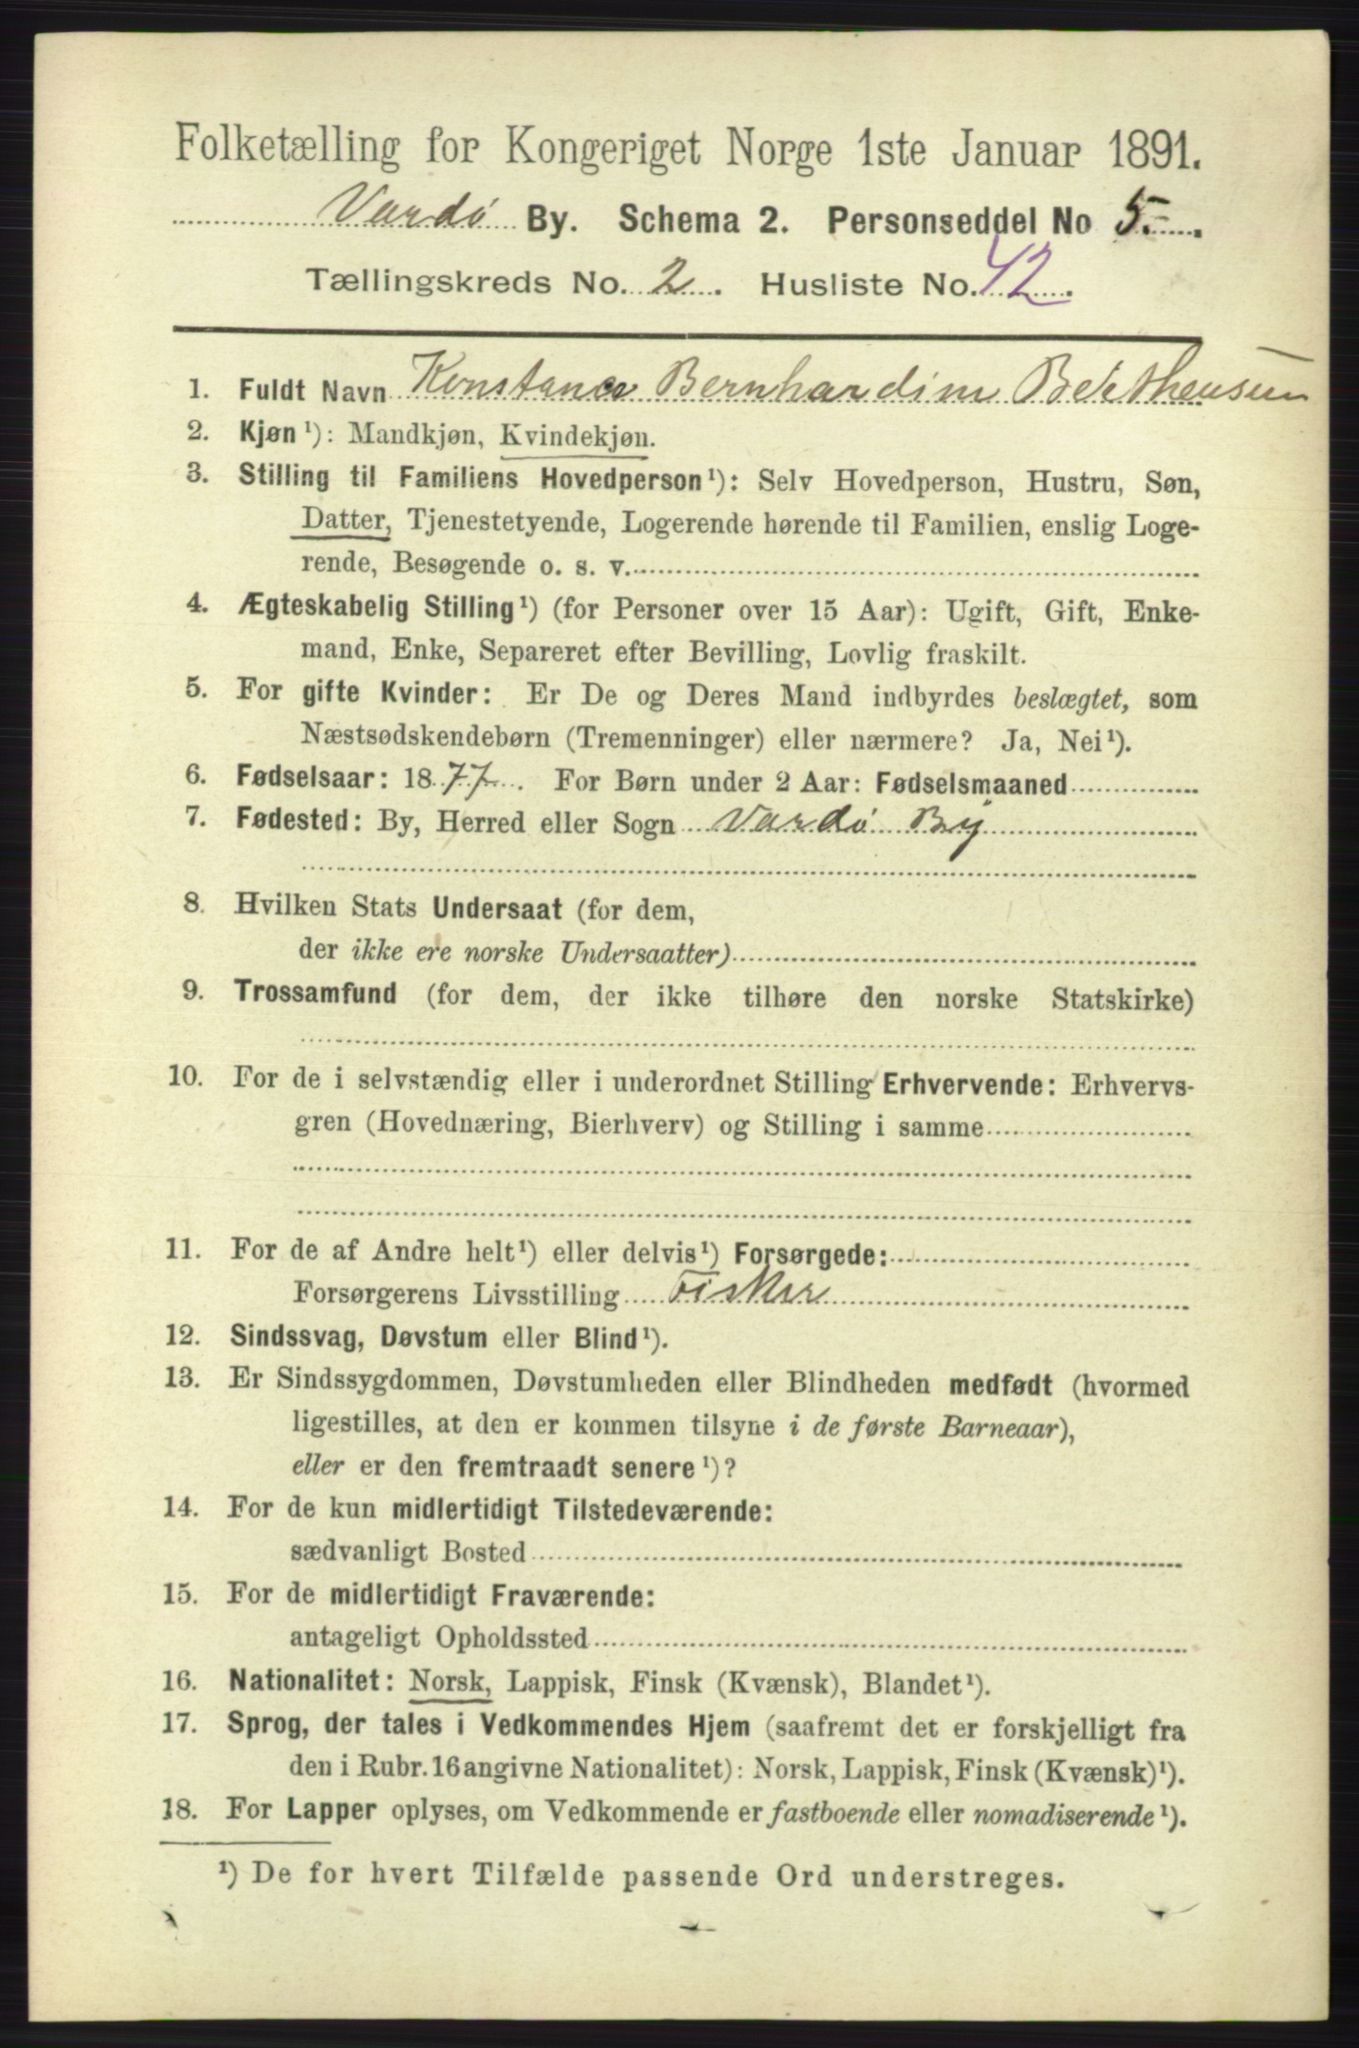 Folketælling for Kongeriget Norge 1ste Januar 1891.
Vardø By. Schema 2. Personseddel No 5.
Tællingskreds No. 2. Husliste No. 42.
1. Fuldt Navn Konstance Bernhardine Bertheusen
2. Kjøn ¹): Mandkjøn, Kvindekjøn.
3. Stilling til Familiens Hovedperson¹): Selv Hovedperson, Hustru, Søn,
Datter, Tjenestetyende, Logerende hørende til Familien, enslig Loge-
rende, Besøgende o. s. v.
4. Ægteskabelig Stilling¹) (for Personer over 15 Aar): Ugift, Gift, Enke-
mand, Enke, Separeret efter Bevilling, Lovlig fraskilt.
5. For gifte Kvinder: Er De og Deres Mand indbyrdes beslægtet, som
Næstsødskendebørn (Tremenninger) eller nærmere? Ja, Nei¹).
6. Fødselsaar: 1877. For Børn under 2 Aar: Fødselsmaaned
7. Fødested: By, Herred eller Sogn Vardø By
8. Hvilken Stats Undersaat (for dem,
der ikke ere norske Undersaatter)
9. Trossamfund (for dem, der ikke tilhøre den norske Statskirke)
10. For de i selvstændig eller i underordnet Stilling Erhvervende: Erhvervs-
gren (Hovednæring, Bierhverv) og Stilling i samme
11. For de af Andre helt¹) eller delvis¹) Forsørgede:
Forsørgerens Livsstilling Fisker
12. Sindssvag, Døvstum eller Blind¹).
13. Er Sindssygdommen, Døvstumheden eller Blindheden medfødt (hvormed
ligestilles, at den er kommen tilsyne i de første Barneaar),
eller er den fremtraadt senere ¹)?
14. For de kun midlertidigt Tilstedeværende:
sædvanligt Bosted
15. For de midlertidigt Fraværende:
antageligt Opholdssted
16. Nationalitet: Norsk, Lappisk, Finsk (Kvænsk), Blandet¹).
17. Sprog, der tales i Vedkommendes Hjem (saafremt det er forskjelligt fra
den i Rubr. 16 angivne Nationalitet): Norsk, Lappisk, Finsk (Kvænsk)¹).
18. For Lapper oplyses, om Vedkommende er fastboende eller nomadiserende ¹).
¹) De for hvert Tilfælde passende Ord understreges.